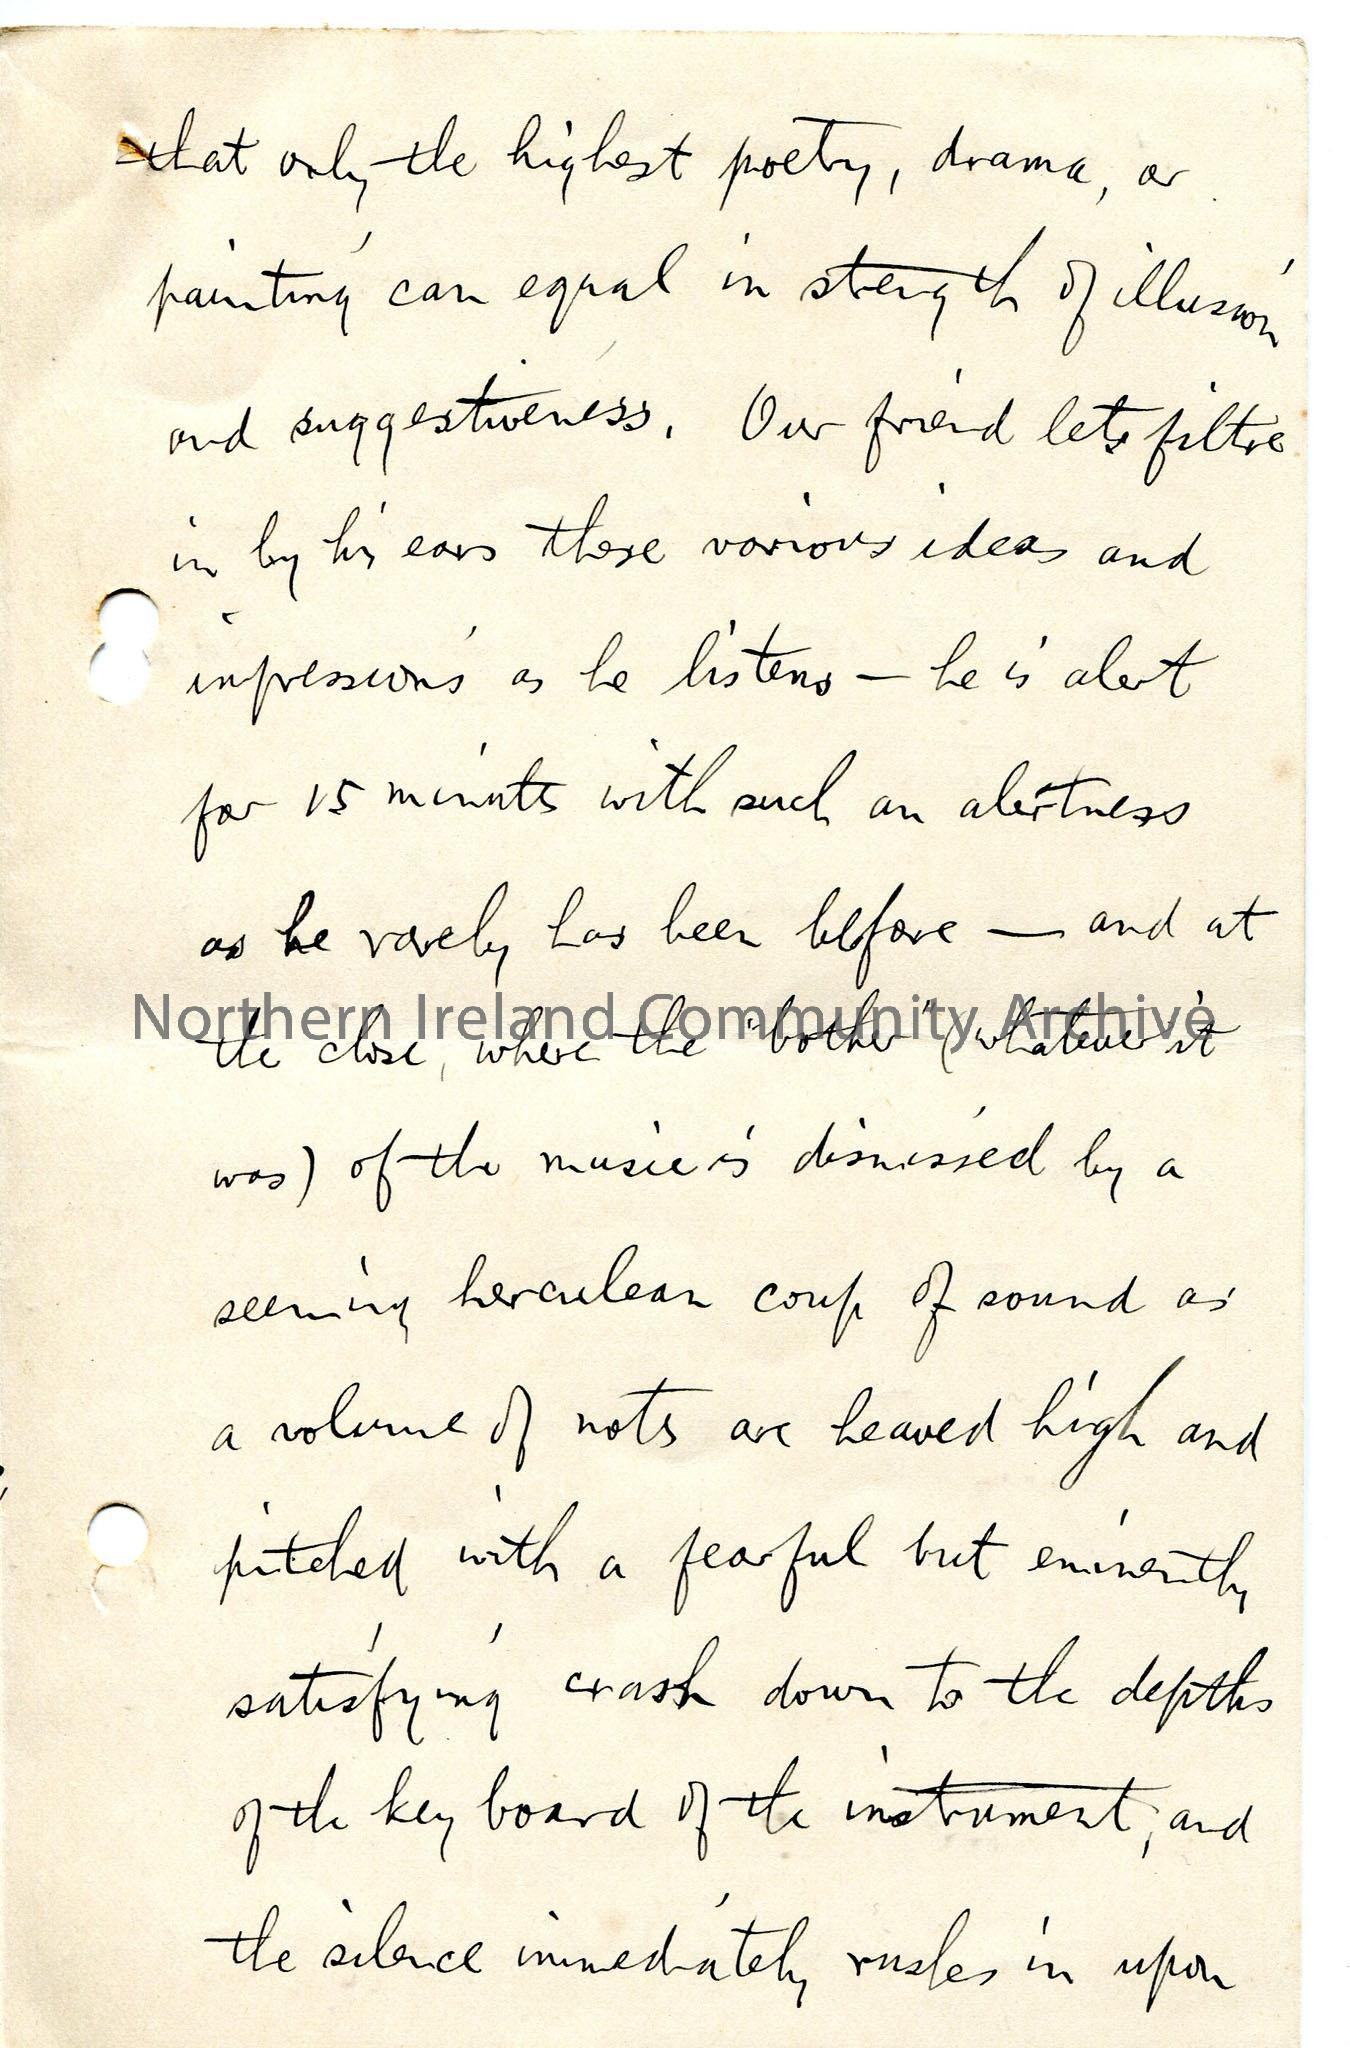 that only the highest poetry, drama, or
painting can equal in strength of illusion
and suggestiveness. Our friend lets filtre
in by his ears these various ideas and
impressions as he listens — he is alert
for 15 minutes with such an alertness
as he rarely has been before — and at
Northern Ireland Community Archive
the close, where the "bother" (whatever it
was) of the music is dismissed by a
seeming herculean coup of sound as
a volume of notes are heaved high and
pitched with a fearful but eminently
satisfying crash down to the depths
of the key board of the instrument, and
the silence immediately rushes in upon